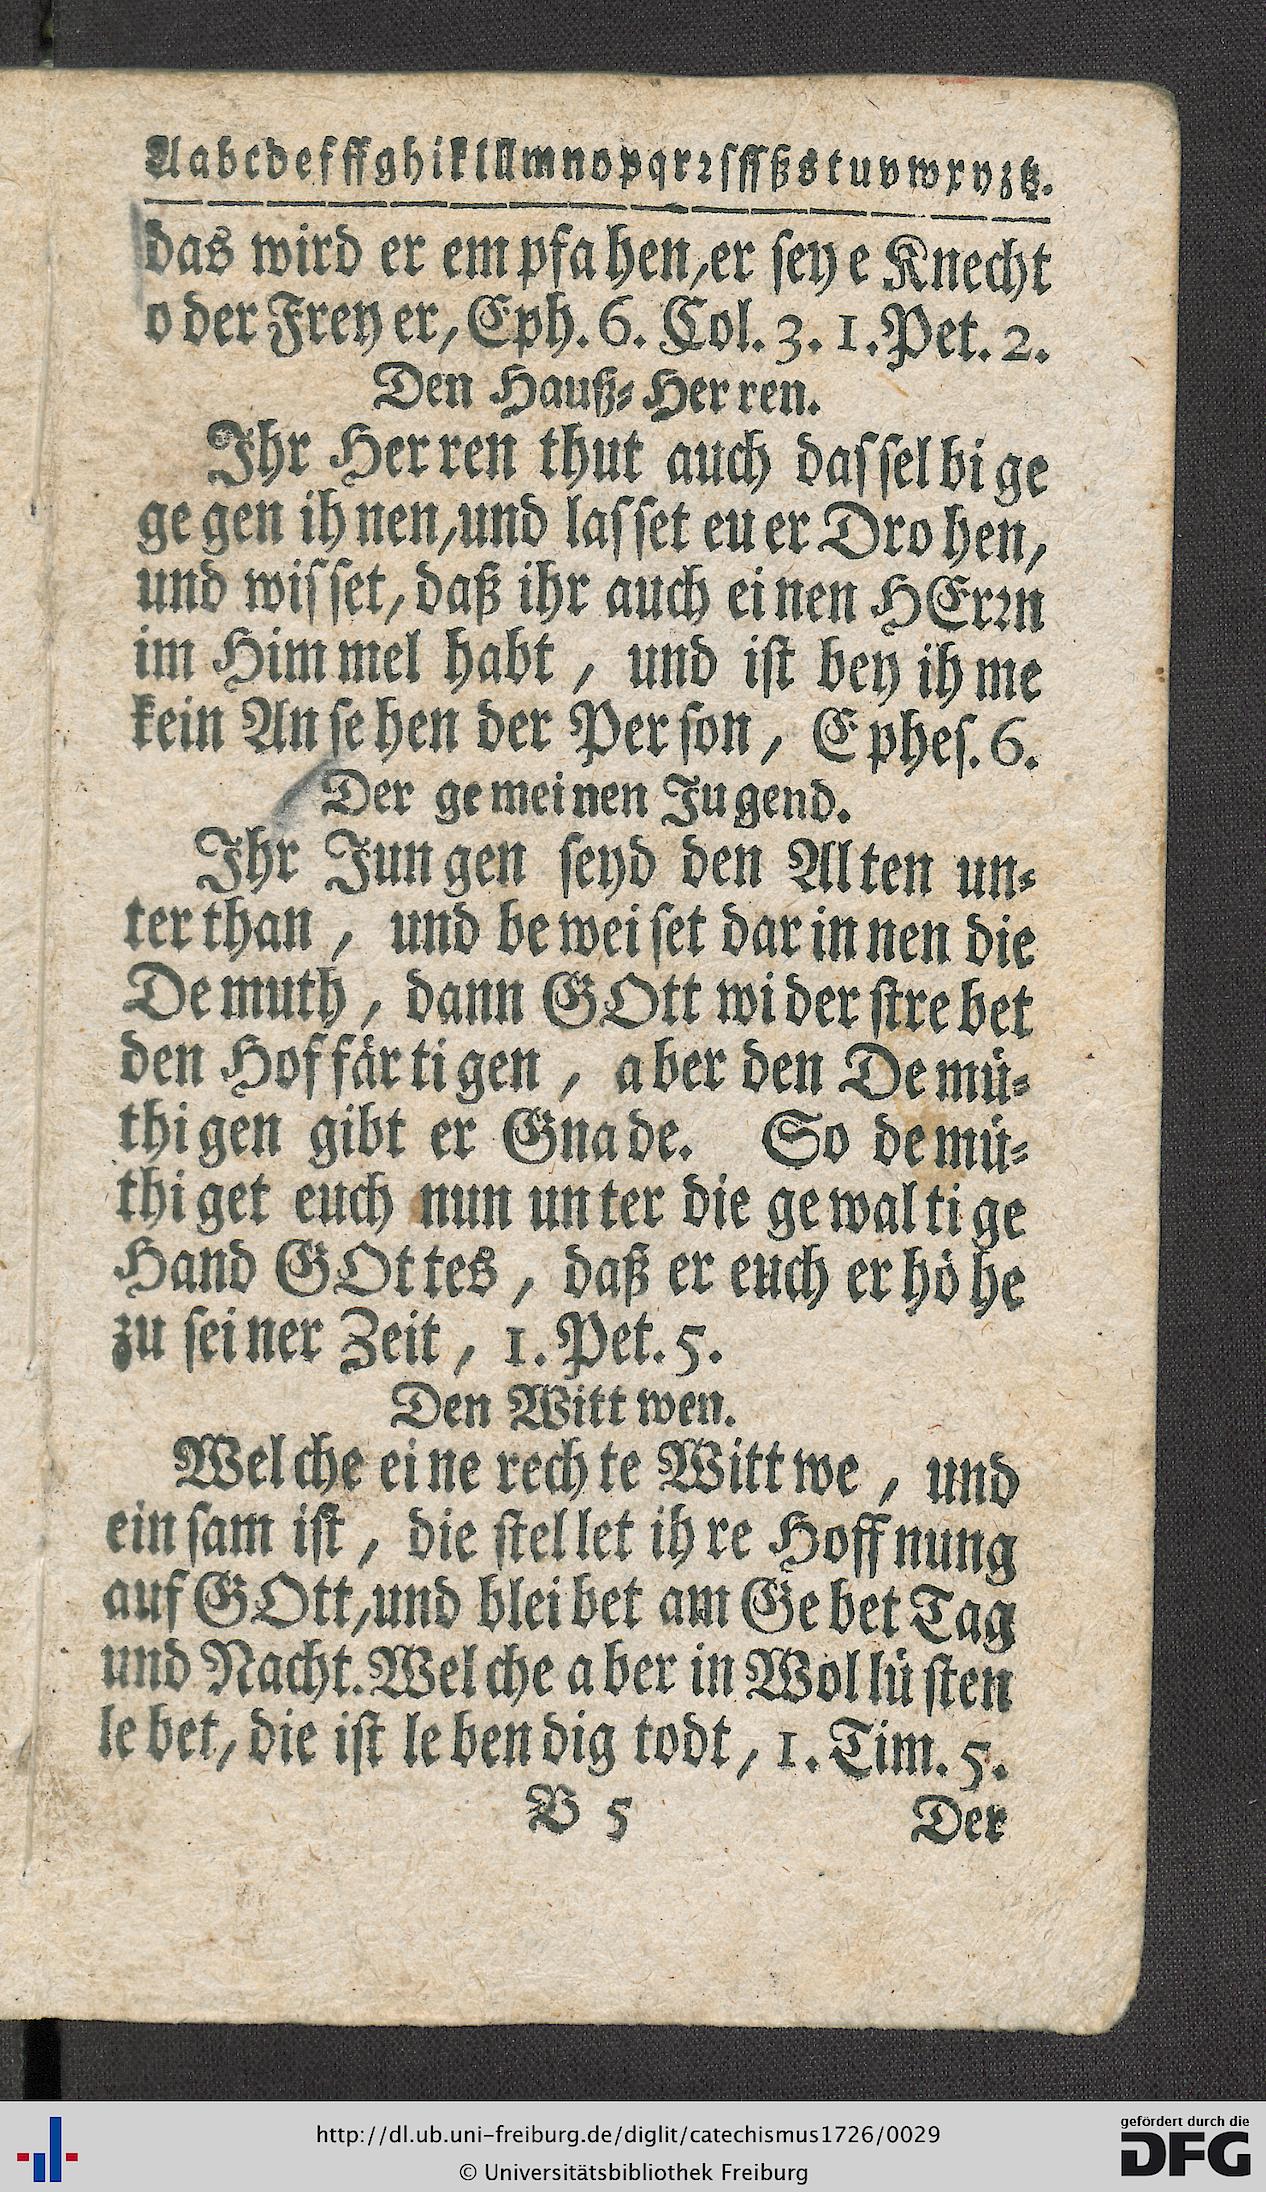 A a b c d e f ff g h i k l ll m n o p q r ꝛ ſ ſſ ß s t u v w x y z tz.
das wird er em pfa hen, er ſey e Knecht
o der Frey er, Eph. 6. Col. 3. 1. Pet. 2.
Den Hauß⸗Her ren.
Ihr Her ren thut auch daſ ſel bi ge
ge gen ih nen, und laſ ſet eu er Dro hen,
und wiſ ſet, daß ihr auch ei nen HErꝛn
im Him mel habt, und iſt bey ih me
kein An ſe hen der Per ſon, E pheſ. 6.
Der ge mei nen Ju gend.
Ihr Jun gen ſeyd den Al ten un⸗
ter than, und be wei ſet dar in nen die
De muth, dann GOtt wi der ſtre bet
den Hof fär ti gen, a ber den De mü⸗
thi gen gibt er Gna de. So de mü⸗
thi get euch nun un ter die ge wal ti ge
Hand GOt tes, daß er euch er hö he
zu ſei ner Zeit, 1. Pet. 5.
Den Witt wen.
Wel che ei ne rech te Witt we, und
ein ſam iſt, die ſtel let ih re Hoff nung
auf GOtt, und blei bet am Ge bet Tag
und Nacht. Wel che a ber in Wol lü ſten
le bet, die iſt le ben dig todt, 1. Tim. 5.
B 5 Der
http://dl.ub.uni-freiburg.de/diglit/catechismus1726/0029
© Universitätsbibliothek Freiburg
gefördert durch die
DFG